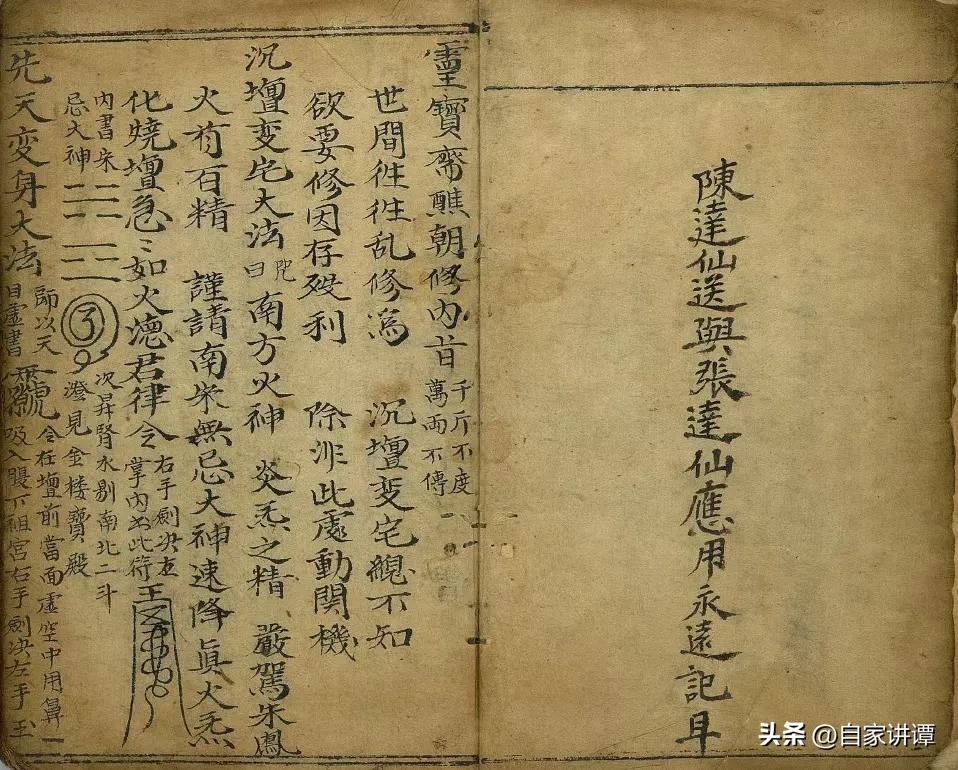 陳達仙送與張達仙應用永遠記耳
靈寶齋醮朝修內旨 千斤不度
萬両不傳
世間徃徃乱修爲 沉壇変宅緫不知
欲要修因存殁利 除非此處動関機
沉壇変宅大法 咒曰 南方火神 炎炁之精 嚴駕朱鳳
火有百精 謹請南柴無忌大神速降眞火炁
化燒壇急〻如火德君律令 右手劍决在
掌內书此符
內書宋
忌大神
次昇腎水剔南北二斗
澄見金楼寶殿
先天変身大法 師以天
目虛書 令在壇前當面虛空中用鼻一
吸入腹下祖宮右手劍决左手玉
头条 @自家讲谭